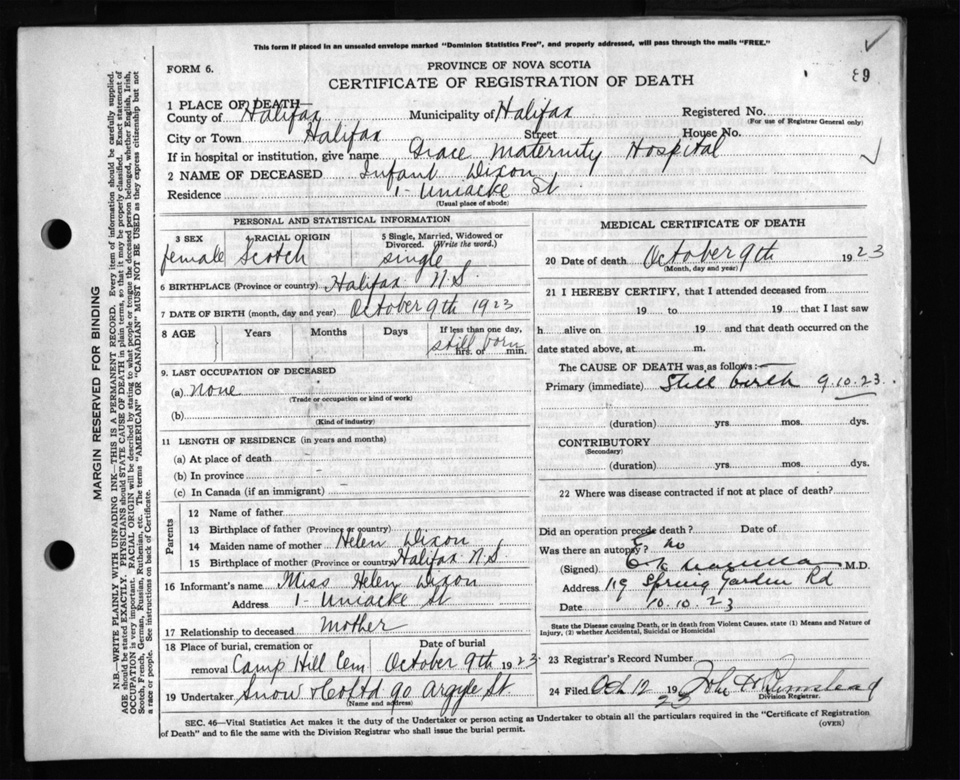 This form if placed in an unsealed envelope marked "Dominion Statistics Free", and properly addressed, will pass through the mails "FREE."
FORM 6.
PROVINCE OF NOVA SCOTIA
CERTIFICATE OF REGISTRATION OF DEATH
89
1 PLACE OF DEATH—
County of Halifax Municipality of Halifax Registered No.
(For use of Registrar General only)
City or Town Halifax Street House No.
If in hospital or institution, give name Grace Maternity Hospital
2 NAME OF DECEASED Infant Dixon
Residence 1- Uniacke St
(Usual place of abode)
PERSONAL AND STATISTICAL INFORMATION
3 SEX 4 RACIAL ORIGIN 5 Single, Married, Widowed or Divorced. (Write the word.)
female Scotch single
6 BIRTHPLACE (Province or country) Halifax N.S.
7 DATE OF BIRTH (month, day and year) October 9th 1923
8 AGE Years Months Days If less than one day,
still born
hrs. or min.
9. LAST OCCUPATION OF DECEASED
(a) None
(Trade or occupation or kind of work)
(b)
(Kind of industry)
11 LENGTH OF RESIDENCE (in years and months)
(a) At place of death
(b) In province
(c) In Canada (if an immigrant)
Parents
12 Name of father
13 Birthplace of father (Province or country)
14 Maiden name of mother Helen Dixon
15 Birthplace of mother (Province or country) Halifax N.S.
16 Informant's name Miss Helen Dixon
Address 1- Uniacke St
17 Relationship to deceased mother
18 Place of burial, cremation or removal Camp Hill Cem
Date of burial October 9th 1923
19 Undertaker Snow & Co Ltd 90 Argyle St.
(Name and address)
MEDICAL CERTIFICATE OF DEATH
20 Date of death October 9th 1923
(Month, day and year)
21 I HEREBY CERTIFY, that I attended deceased from
19 to 19 that I last saw
h alive on 19 and that death occurred on the
date stated above, at m.
The CAUSE OF DEATH was as follows:—
Primary (immediate) Still birth 9.10.23.
(duration) yrs. mos. dys.
CONTRIBUTORY
(Secondary)
(duration) yrs. mos. dys.
22 Where was disease contracted if not at place of death?
Did an operation precede death? Date of
Was there an autopsy? no
(Signed) M.D.
Address 119 Spring Garden Rd
Date 10.10.23
State the Disease causing Death, or in death from Violent Causes, state (1) Means and Nature of
Injury, (2) whether Accidental, Suicidal or Homicidal
23 Registrar's Record Number
24 Filed Oct 12 1923 John H
Division Registrar.
SEC. 46—Vital Statistics Act makes it the duty of the Undertaker or person acting as Undertaker to obtain all the particulars required in the "Certificate of Registration
of Death" and to file the same with the Division Registrar who shall issue the burial permit.
(OVER)
MARGIN RESERVED FOR BINDING
N.B.—WRITE PLAINLY WITH UNFADING INK—THIS IS A PERMANENT RECORD. Every item of information should be carefully supplied.
AGE should be stated EXACTLY. PHYSICIANS should STATE CAUSE OF DEATH in plain terms, so that it may be properly classified. Exact statement of
OCCUPATION is very important. RACIAL ORIGIN will be described by stating to what people or tongue the deceased person belonged, whether English, Irish,
Scotch, French, German, Russian, Ruthenian, etc. The terms "AMERICAN" OR "CANADIAN" MUST NOT BE USED as they express citizenship but not
a race or people. See instructions on back of Certificate.